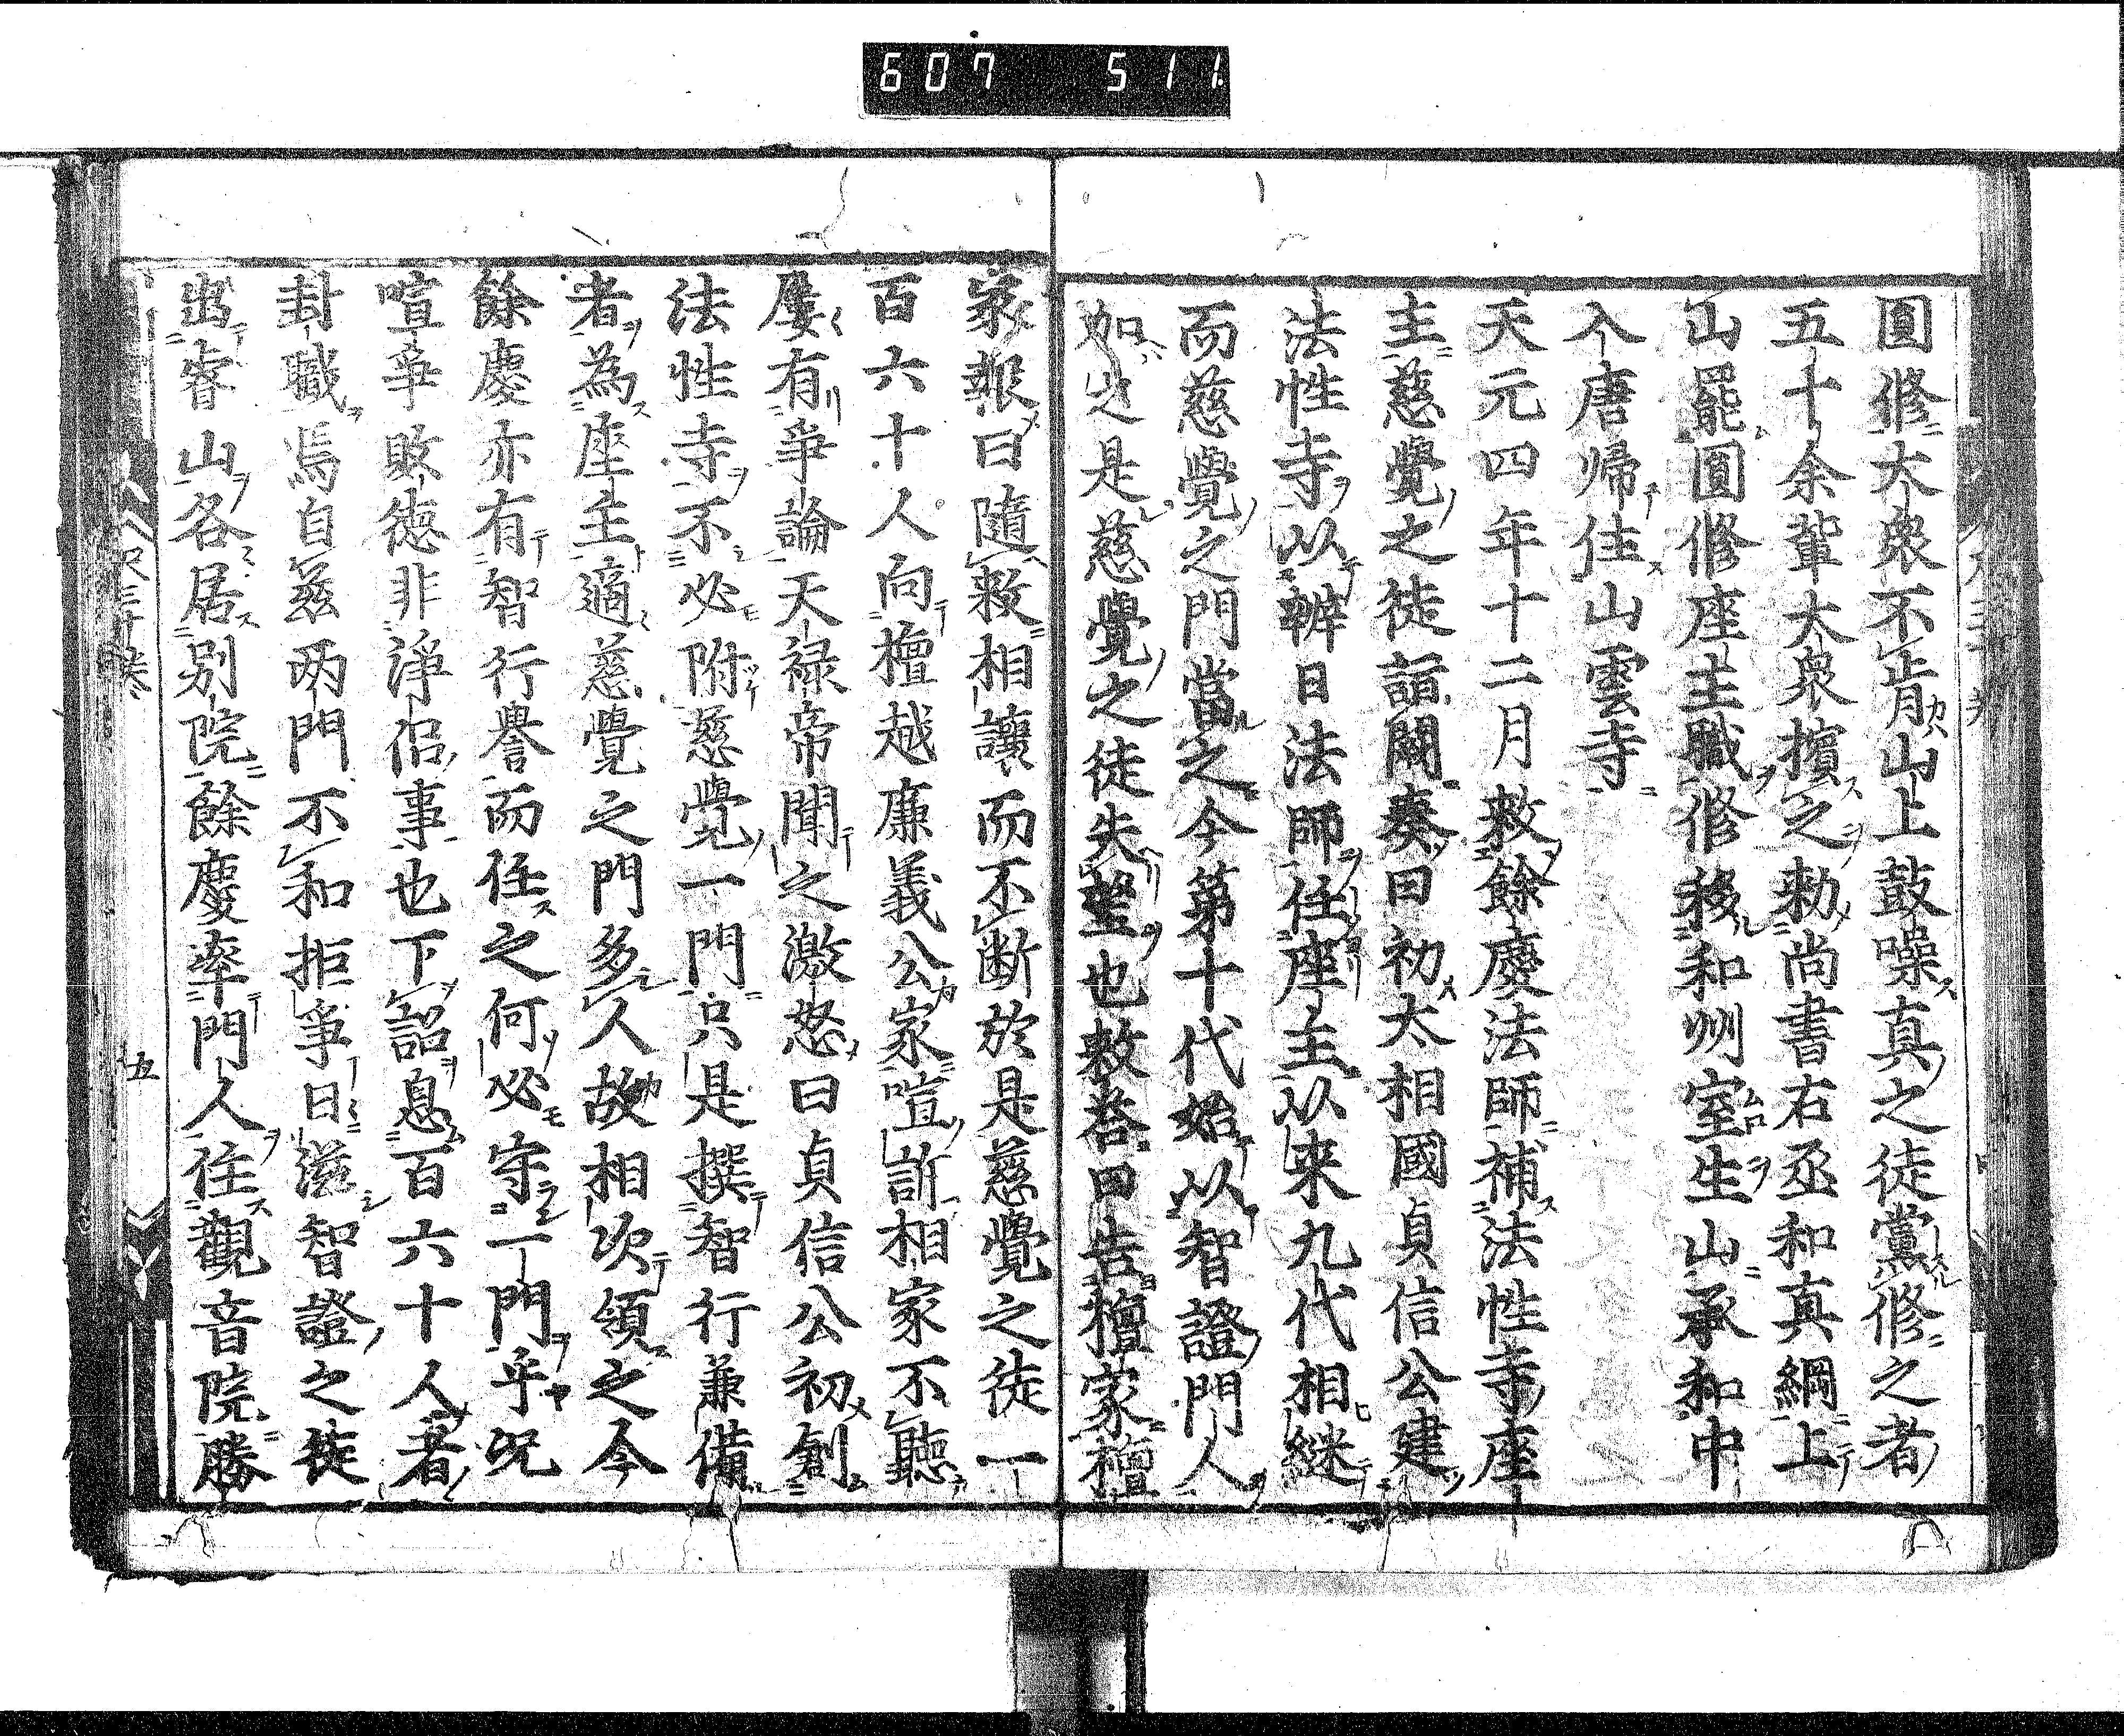 607 511
圓修大衆不肯山上鼓噪真之徒黨修之者
五十余輩大衆擯之勅尚書右丞和真綱上
山罷圓修座主職修移和州室生山承和中
入唐帰住山雲寺
天元四年十二月敕餘慶法師補法性寺座
主慈覺之徒詣闕奏曰初太相國貞信公建
法性寺以辨日法師任座主以来九代相継
而慈覺之門當之今第十代始以智證門人
如之是慈覺之徒失望也敕答曰告檀家檀
家報曰隨敕相讓而不断於是慈覺之徒一
百六十人向檀越廉義公家喧訴相家不聽
屢有爭論天禄帝聞之激怒曰貞信公初創
法性寺不必附慈覺一門只是撰智行兼備
者為座主適慈覺之門多人故相次領之今
餘慶亦有智行譽而任之何必守一門乎况
喧爭敗徳非淨侶事也下詔息百六十人者
封職焉自茲两門不和拒爭日滋智證之徒
出睿山各居別院餘慶率門人住觀音院勝
五